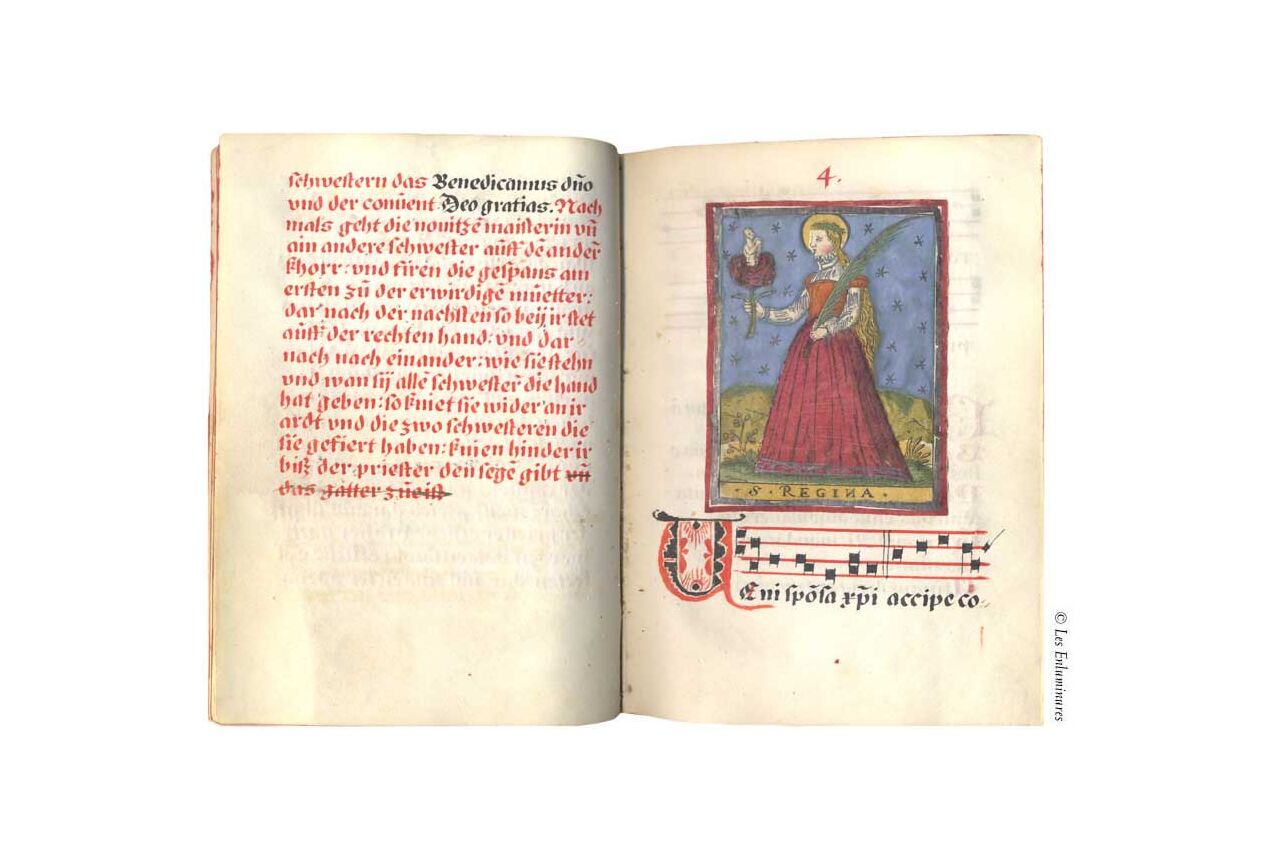 schwestern das Benedicamus dño
vnd der conũent Deo gratias. Nach
mals geht die nouitzẽ maisterin vñ
ain andere schwester aũff dẽ anderẽ
khorr: vnd fũren die gespons am
ersten zũ der erwirdigẽ mũetter:
dar nach der nachsten so beÿ ir stet
aũff der rechten hand: vnd dar
nach nach einander: wie sie stehn
vnd wan sÿ allẽ schwesterẽ die hand
hat geben: so kniet sie wider an ir
ardt vnd die zwo schwesteren die
sie gefiert haben: knien hinder ir
biß der priester den segẽ gibt vñ
das gatter zũ ist
4.
S · REGINA ·
Veni spõsa xp̃i accipe co-
© Les Enluminures